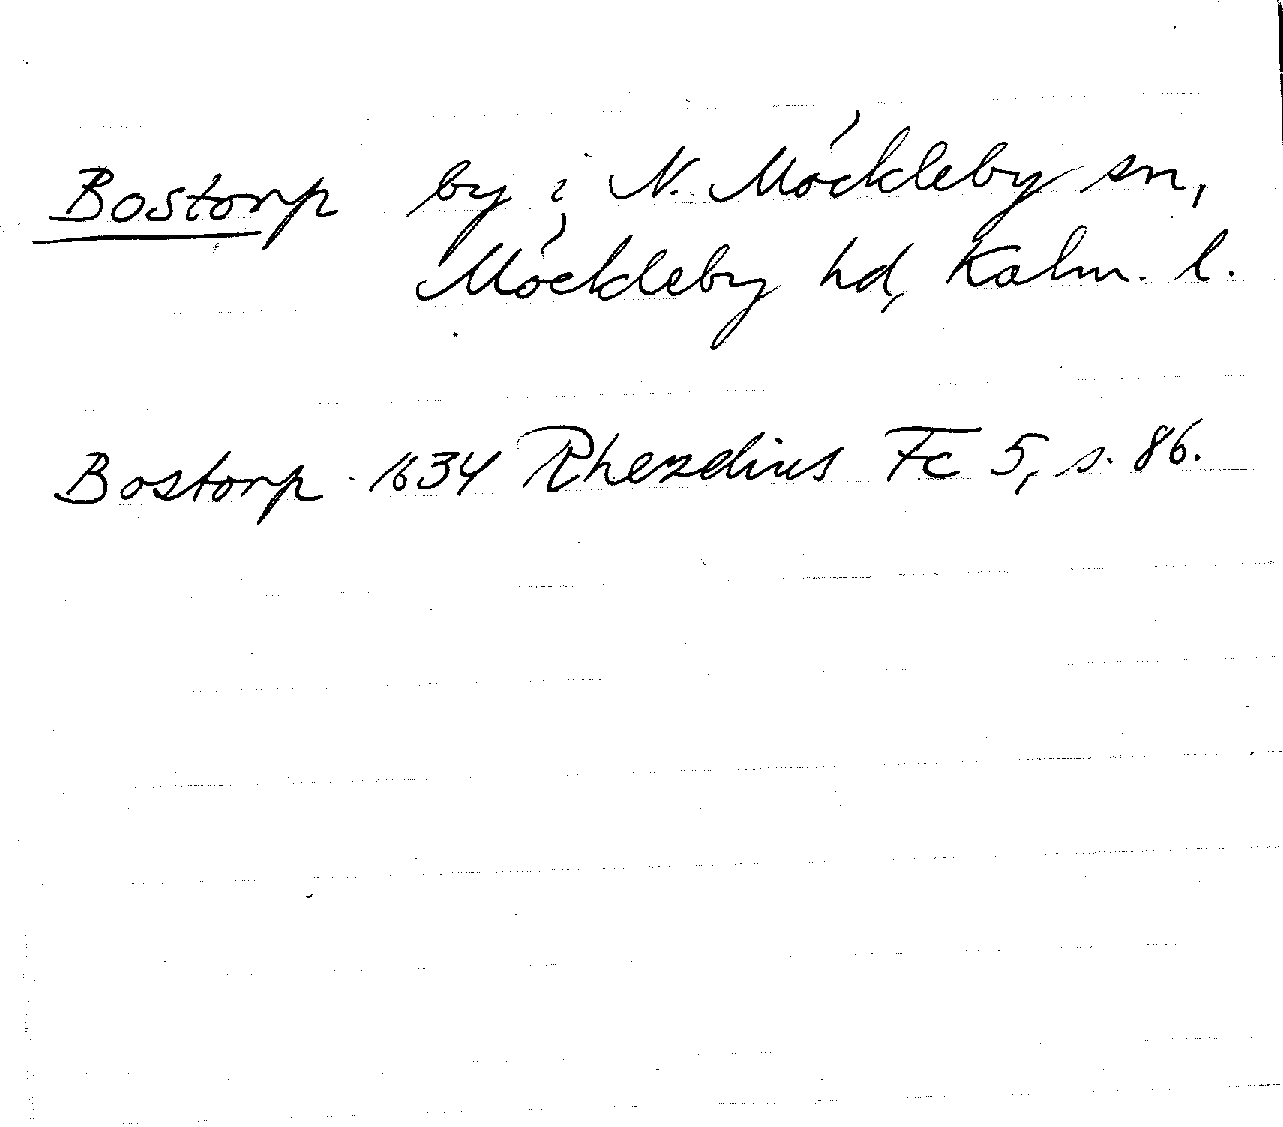 Bostorp by i N. Möckleby sn,
Möckleby hd, Kalm. l.
Bostorp 1634 Rhezelius Fc 5, s. 86.